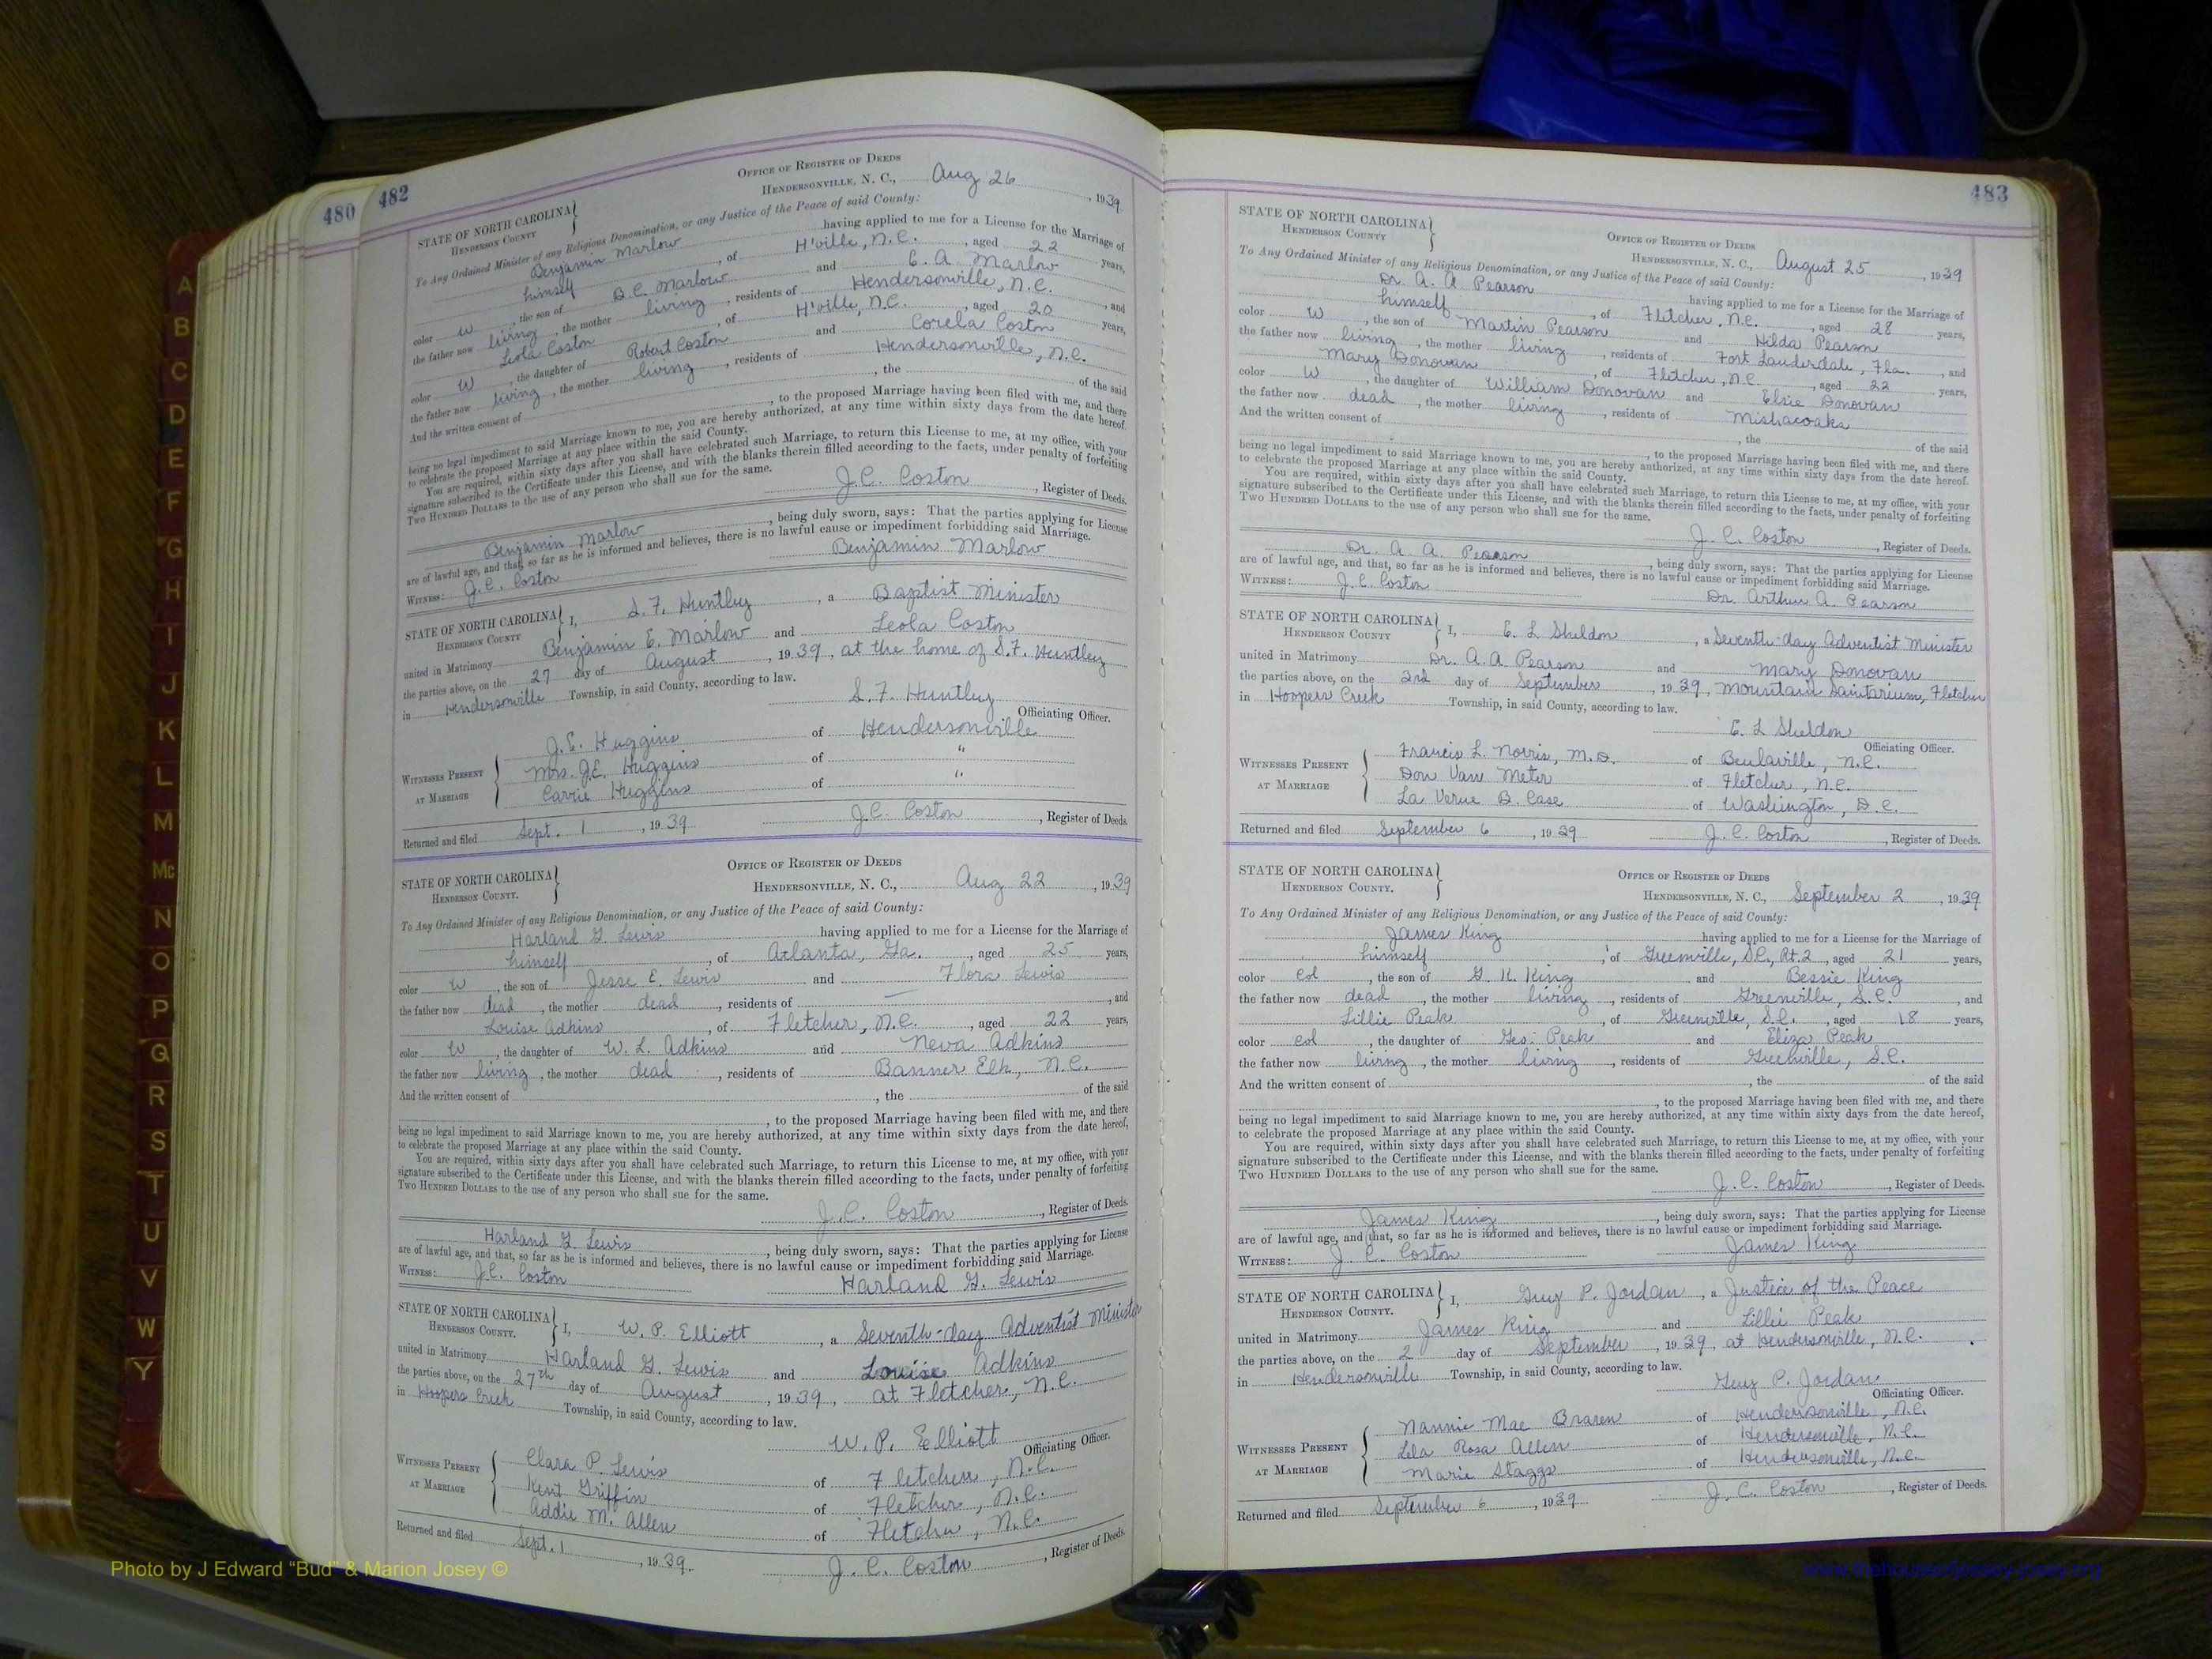 480
482
OFFICE OF REGISTER OF DEEDS
HENDERSONVILLE, N. C., Aug 26, 1939
STATE OF NORTH CAROLINA
HENDERSON COUNTY
To Any Ordained Minister of any Religious Denomination, or any Justice of the Peace of said County:
Benjamin Marlow having applied to me for a License for the Marriage of
himself, of H'ville, N.C., aged 22 years,
color W, the son of B.C. Marlow and E. A. Marlow
the father now living, the mother living, residents of Hendersonville, N.C., and
Leola Coston, of H'ville, N.C., aged 20 years,
color W, the daughter of Robert Coston and Corela Coston
the father now living, the mother living, residents of Hendersonville, N.C.
And the written consent of , the of the said
, to the proposed Marriage having been filed with me, and there
being no legal impediment to said Marriage known to me, you are hereby authorized, at any time within sixty days from the date hereof,
to celebrate the proposed Marriage at any place within the said County.
You are required, within sixty days after you shall have celebrated such Marriage, to return this License to me, at my office, with your
signature subscribed to the Certificate under this License, and with the blanks therein filled according to the facts, under penalty of forfeiting
TWO HUNDRED DOLLARS to the use of any person who shall sue for the same.
J.C. Coston, Register of Deeds.
Benjamin Marlow, being duly sworn, says: That the parties applying for License
are of lawful age, and that, so far as he is informed and believes, there is no lawful cause or impediment forbidding said Marriage.
WITNESS: J.C. Coston Benjamin Marlow
STATE OF NORTH CAROLINA I, S.F. Huntley, a Baptist Minister
HENDERSON COUNTY
united in Matrimony Benjamin E. Marlow and Leola Coston
the parties above, on the 27 day of August, 1939, at the home of S.F. Huntley
in Hendersonville Township, in said County, according to law.
S. F. Huntley
Officiating Officer.
WITNESSES PRESENT AT MARRIAGE
J.E. Huggins of Hendersonville
Mrs. J.E. Huggins of "
Carrie Huggins of "
Returned and filed Sept. 1, 1939 J.C. Coston, Register of Deeds.
OFFICE OF REGISTER OF DEEDS
STATE OF NORTH CAROLINA
HENDERSON COUNTY.
HENDERSONVILLE, N. C., Aug 22, 1939
To Any Ordained Minister of any Religious Denomination, or any Justice of the Peace of said County:
Harland G. Lewis having applied to me for a License for the Marriage of
himself, of Atlanta, Ga., aged 25 years,
color W, the son of Jesse E. Lewis and Flora Lewis
the father now dead, the mother dead, residents of —, and
Louise Adkins, of Fletcher, N.C., aged 22 years,
color W, the daughter of W. L. Adkins and Neva Adkins
the father now living, the mother dead, residents of Banner Elk, N.C.
And the written consent of , the of the said
, to the proposed Marriage having been filed with me, and there
being no legal impediment to said Marriage known to me, you are hereby authorized, at any time within sixty days from the date hereof,
to celebrate the proposed Marriage at any place within the said County.
You are required, within sixty days after you shall have celebrated such Marriage, to return this License to me, at my office, with your
signature subscribed to the Certificate under this License, and with the blanks therein filled according to the facts, under penalty of forfeiting
TWO HUNDRED DOLLARS to the use of any person who shall sue for the same.
J.C. Coston, Register of Deeds.
Harland G. Lewis, being duly sworn, says: That the parties applying for License
are of lawful age, and that, so far as he is informed and believes, there is no lawful cause or impediment forbidding said Marriage.
WITNESS: J.C. Coston Harland G. Lewis
STATE OF NORTH CAROLINA I, W. P. Elliott, a Seventh-day Adventist Minister
HENDERSON COUNTY.
united in Matrimony Harland G. Lewis and Louise Adkins
the parties above, on the 27th day of August, 1939, at Fletcher, N.C.
in Hoopers Creek Township, in said County, according to law.
W. P. Elliott
Officiating Officer.
WITNESSES PRESENT AT MARRIAGE
Clara P. Lewis of Fletcher, N.C.
Kent Griffin of Fletcher, N.C.
Addie M. Allen of Fletcher, N.C.
Returned and filed Sept. 1, 1939. J. C. Coston, Register of Deeds.
483
STATE OF NORTH CAROLINA
HENDERSON COUNTY
OFFICE OF REGISTER OF DEEDS
HENDERSONVILLE, N. C., August 25, 1939
To Any Ordained Minister of any Religious Denomination, or any Justice of the Peace of said County:
Dr. A. A. Pearson having applied to me for a License for the Marriage of
himself, of Fletcher, N.C., aged 28 years,
color W, the son of Martin Pearson and Hilda Pearson
the father now living, the mother living, residents of Fort Lauderdale, Fla., and
Mary Donovan, of Fletcher, N.C., aged 22 years,
color W, the daughter of William Donovan and Elsie Donovan
the father now dead, the mother living, residents of Mishacoaks
And the written consent of
, the of the said
, to the proposed Marriage having been filed with me, and there
being no legal impediment to said Marriage known to me, you are hereby authorized, at any time within sixty days from the date hereof.
to celebrate the proposed Marriage at any place within the said County.
You are required, within sixty days after you shall have celebrated such Marriage, to return this License to me, at my office, with your
signature subscribed to the Certificate under this License, and with the blanks therein filled according to the facts, under penalty of forfeiting
TWO HUNDRED DOLLARS to the use of any person who shall sue for the same.
J. C. Coston, Register of Deeds.
Dr. A. A. Pearson, being duly sworn, says: That the parties applying for License
are of lawful age, and that, so far as he is informed and believes, there is no lawful cause or impediment forbidding said Marriage.
WITNESS: J. C. Coston Dr. Arthur A. Pearson
STATE OF NORTH CAROLINA I, E. L Sheldon, a Seventh-day Adventist Minister
HENDERSON COUNTY
united in Matrimony Dr. A. A. Pearson and Mary Donovan
the parties above, on the 2nd day of September, 1939, Mountain Sanitarium, Fletcher
in Hoopers Creek Township, in said County, according to law.
E. L Sheldon
Officiating Officer.
WITNESSES PRESENT AT MARRIAGE
Francis L. Norris, M.D. of Beulaville, N.C.
Don Van Meter of Fletcher, N.C.
La Verne B. Case of Washington, D.C.
Returned and filed September 6, 1939 J. C. Coston, Register of Deeds.
STATE OF NORTH CAROLINA
HENDERSON COUNTY.
OFFICE OF REGISTER OF DEEDS
HENDERSONVILLE, N. C., September 2, 1939
To Any Ordained Minister of any Religious Denomination, or any Justice of the Peace of said County:
James King having applied to me for a License for the Marriage of
himself, of Greenville, S.C., Rt.2, aged 21 years,
color col, the son of G. K. King and Bessie King
the father now dead, the mother living, residents of Greenville, S.C., and
Lillie Peak, of Greenville, S.C., aged 18 years,
color col, the daughter of Geo. Peak and Eliza Peak
the father now living, the mother living, residents of Greenville, S.C.
And the written consent of , the of the said
, to the proposed Marriage having been filed with me, and there
being no legal impediment to said Marriage known to me, you are hereby authorized, at any time within sixty days from the date hereof,
to celebrate the proposed Marriage at any place within the said County.
You are required, within sixty days after you shall have celebrated such Marriage, to return this License to me, at my office, with your
signature subscribed to the Certificate under this License, and with the blanks therein filled according to the facts, under penalty of forfeiting
TWO HUNDRED DOLLARS to the use of any person who shall sue for the same.
J. C. Coston, Register of Deeds.
James King, being duly sworn, says: That the parties applying for License
are of lawful age, and that, so far as he is informed and believes, there is no lawful cause or impediment forbidding said Marriage.
WITNESS: J. C. Coston James King
STATE OF NORTH CAROLINA I, Guy P. Jordan, a Justice of the Peace
HENDERSON COUNTY.
united in Matrimony James King and Lillie Peak
the parties above, on the 2 day of September, 1939, at Hendersonville, N.C.
in Hendersonville Township, in said County, according to law.
Guy P. Jordan
Officiating Officer.
WITNESSES PRESENT AT MARRIAGE
Nannie Mae Braren of Hendersonville, N.C.
Lela Rosa Allen of Hendersonville, N.C.
Marie Staggs of Hendersonville, N.C.
Returned and filed September 6, 1939 J. C. Coston, Register of Deeds.
A
B
C
D
E
F
G
H
I
J
K
L
M
Mc
N
O
P
Q
R
S
T
U
V
W
Y
Photo by J Edward “Bud” & Marion Josey ©
www.thehouseofjossey-josey.org